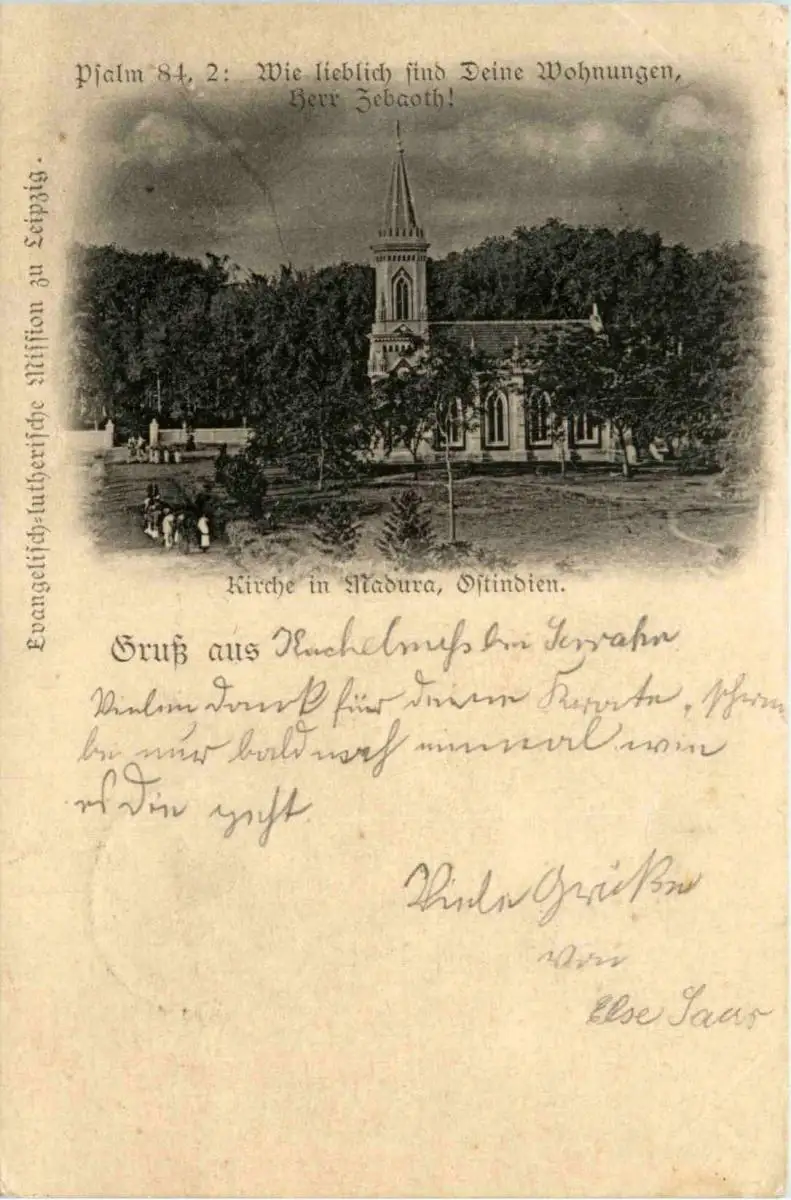 Psalm 84, 2: Wie lieblich sind Deine Wohnungen,
Herr Zebaoth!
Evangelisch-lutherische Mission zu Leipzig.
Kirche in Madura, Ostindien.
Gruß aus bei Serrahn
Vielen Dank für deine Karte, schrei
be nur bald noch einmal wie
es dir geht.
Viele Grüße
von
Else Saur